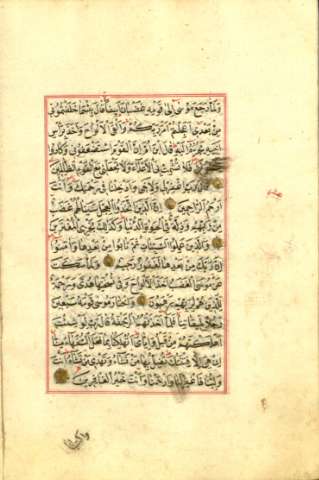 ولما رجع موسى إلى قومه غضبان أسفا قال بئسما خلفتموني
من بعدي أعجلتم أمر ربكم وألقى الألواح وأخذ برأس
أخيه يجره إليه قال ابن أم إن القوم استضعفوني وكادوا
فلا تشمت بي الأعداء ولا تجعلني مع القوم الظالمين
قال رب اغفر لي ولأخي وأدخلنا في رحمتك وأنت
أرحم الراحمين إن الذين اتخذوا العجل سينالهم غضب
من ربهم وذلة في الحيوة الدنيا وكذلك نجزي المفترين
والذين عملوا السيئات ثم تابوا من بعدها وآمنوا
إن ربك من بعدها لغفور رحيم ولما سكت
عن موسى الغضب أخذ الألواح وفي نسختها هدى ورحمة
للذين هم لربهم يرهبون واختار موسى قومه سبعين
رجلا لميقاتنا فلما أخذتهم الرجفة قال رب لو شئت
أهلكتهم من قبل وإياي أتهلكنا بما فعل السفهاء منا
إن هي إلا فتنتك تضل بها من تشاء وتهدي من تشاء أنت
ولينا فاغفر لنا وارحمنا وأنت خير الغافرين
واكتب لنا